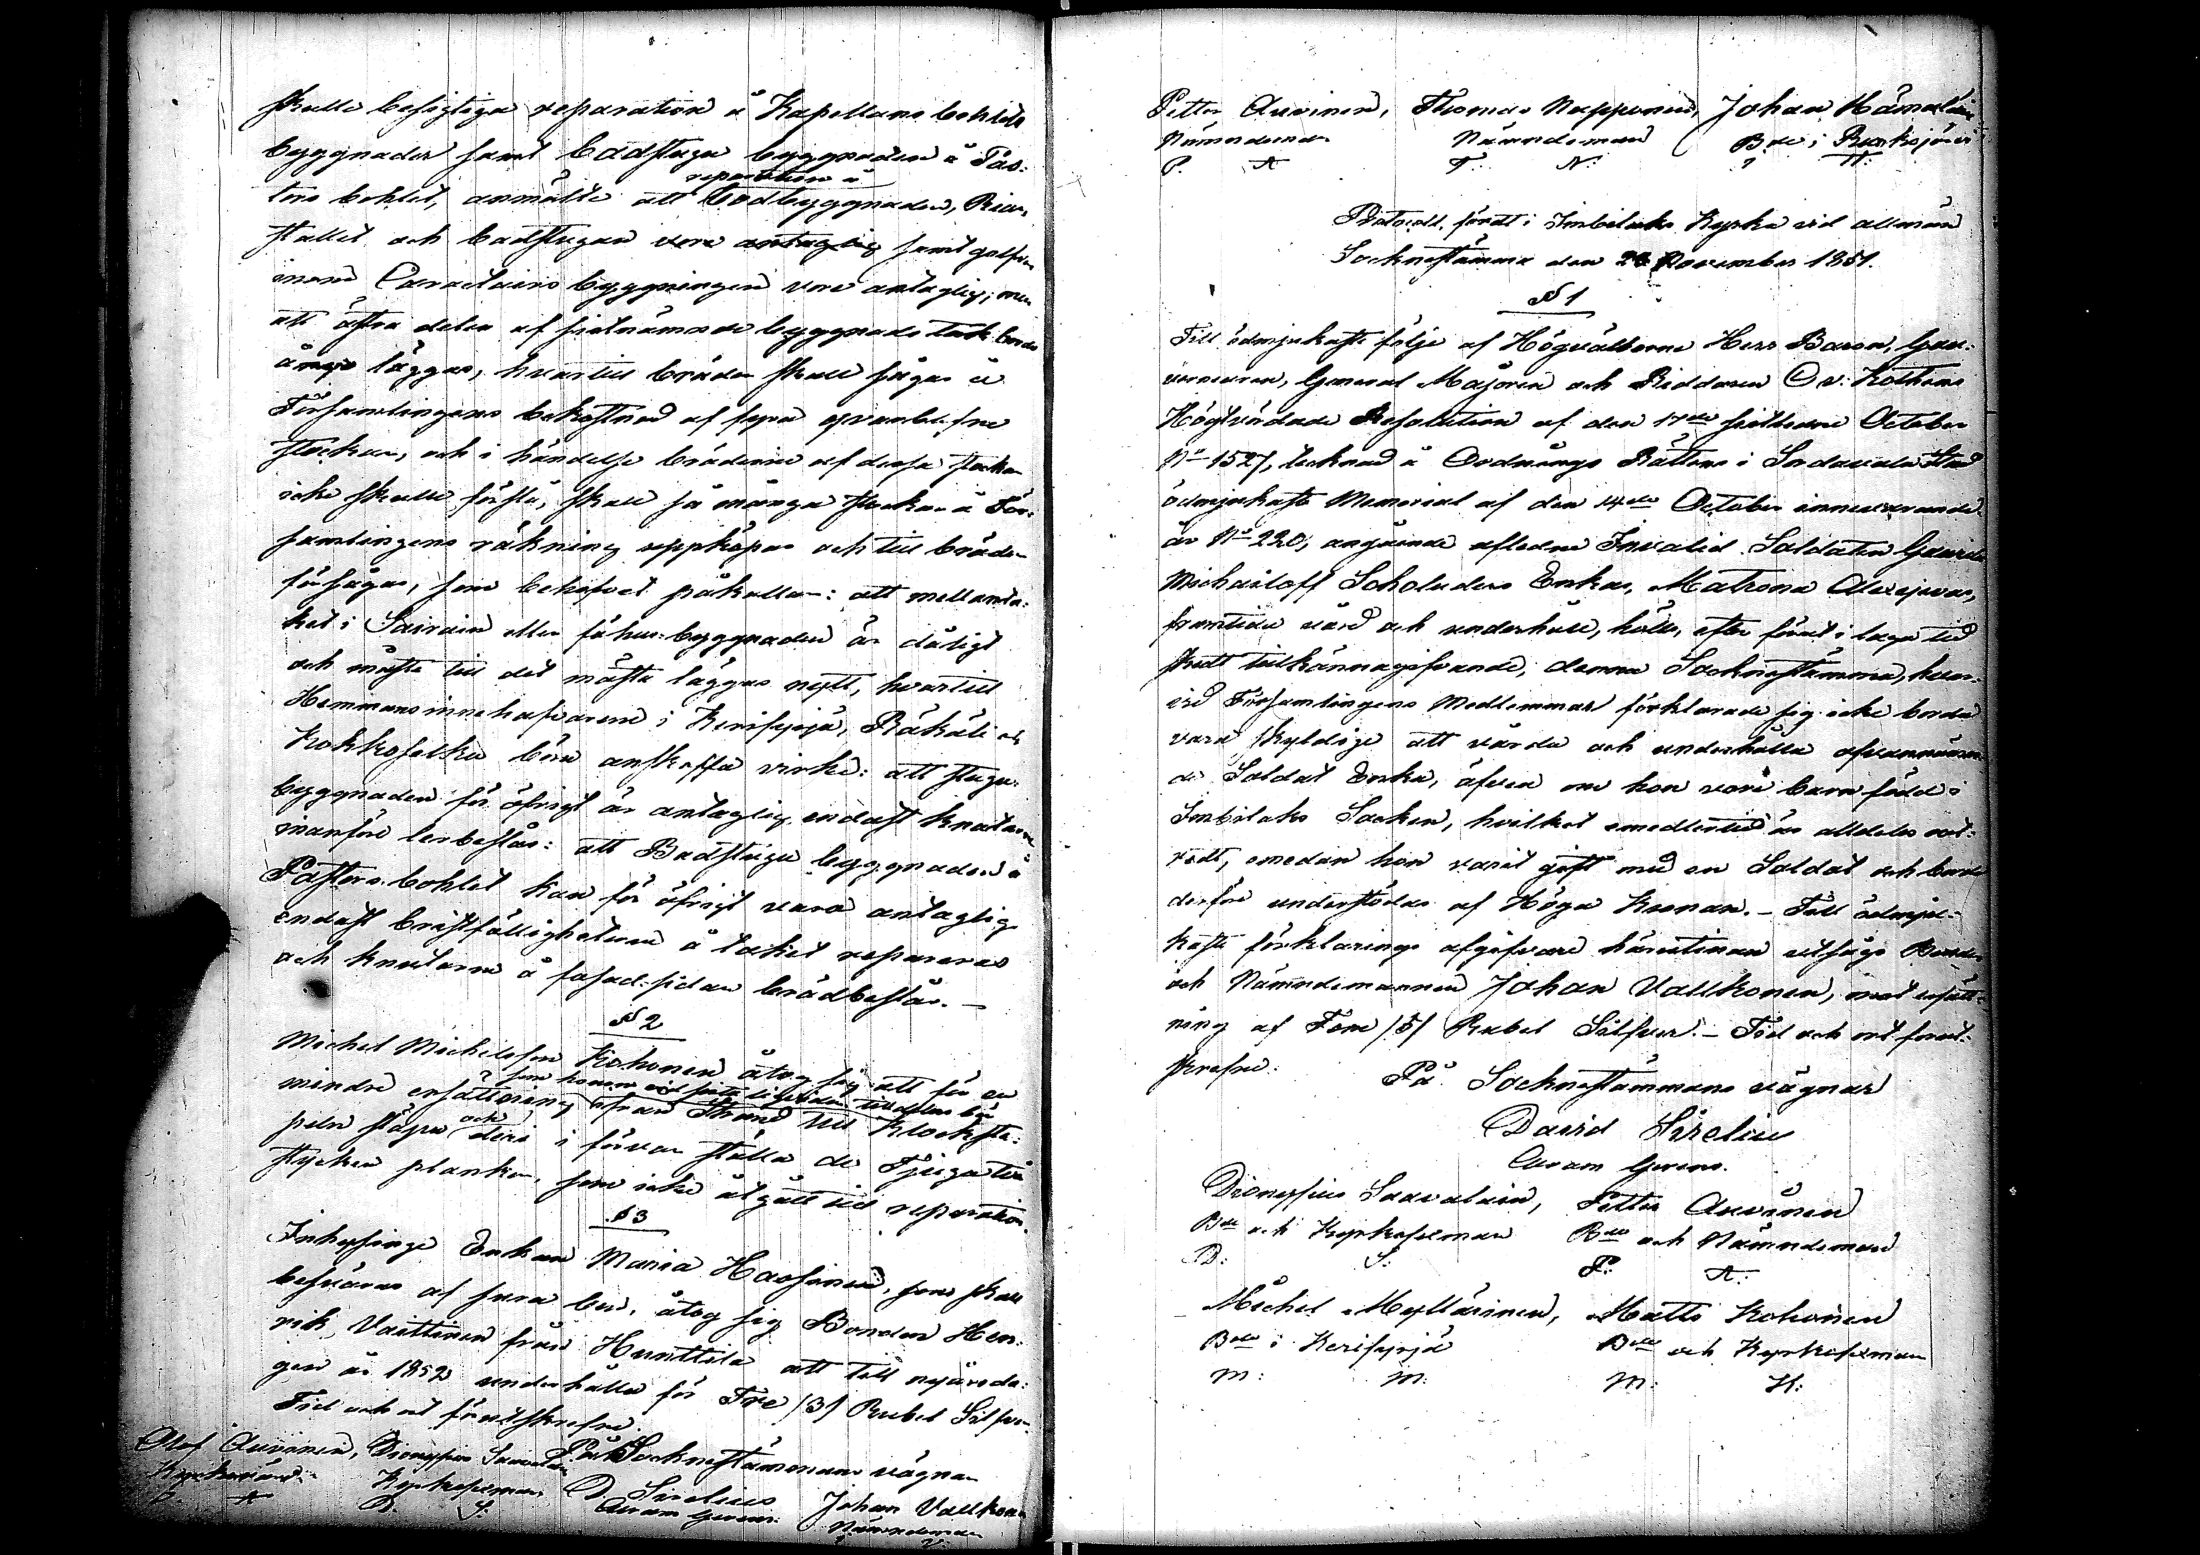 skulle besigtiga reparation å Kapellans bohlets
byggnader samt badstugu byggnaden å Pas-
tors bohlet, anmälte att reparation å bodbyggnaden, Rian,
stallet och badstugan vore antaglig samt golfven
inom Caractairs byggningen vore antaglig; men
att östra delen af sistnämnde byggnads tak borde
läggas, hvartill bräder skall sågas å
Församlingens bekostnad af fyra qvarblefne
stockar, och i händelse bräderne af dessa stockar
icke skulle förslå, skall så många stockar å För-
samlingens räkning uppköpas och till bräder
försågas, som behofvet påkallar: att mellanta-
ket i Sairain eller fähus-byggnaden är dåligt
och måste till det mästa läggas nytt, hvartill
Hemmansinnehafvarene i Kerisyrjä, Räkäli och
Kokkoselkä böra anskaffa virke: att stugu-
byggnaden för öfrigt är antaglig endast knutarne
inanföre lerbeslås: att Badstugu byggnaden å
Pastors bohlet kan för öfrigt vara antaglig
endast bristfälligheterne å taket repareras
och knutarne å fasad-sidan brädbeslås. —
§ 2
Michel Michelsson Kohonen åtog sig att för en
mindre ersättning som honom vid sista tillfallen bör
från Strand till Klocksta-
peln släpa och der i förvar ställa de Tjugutvå
stycken plankor, som icke åtgått till reparation.
§ 3
Inhysinge Enkan Maria Hassinen, som skall
besväras af svra ben, åtog sig Bonden Hen-
rik Vaittinen från Hunttila att till nyårsda-
gen år 1852 underhålla för Tre /3/ Rubel Silfver.
Tid och ort förutskrefne.
På Sockenstämmans vägnar
D. Sirelius
Curam Gerens.
Olof Auvinen, Dionysius Saavalain
Kyrkovärd. Kyrkosexman
O. A D. S.
Johan Vallkonen
Nämndeman
V.
Petter Auvinen, Thomas Napponen, Johan Hämäläin
Nämndeman Nämndeman Bde i Ruokojärvi
P. A T. N: I H:
Protocoll, fördt i Imbilaks Kyrka vid allmän
Sockenstämma den 24 November 1851.
§ 1
Till ödmjukaste följe af Högvälborne Herr Baron, Guv-
verneuren, General Majoren och Riddaren C v: Kothens
Högtvördade Resolution af den 17de sistledne October
No 1527, tecknad å Ordnings Rättens i Sordavala Stad
ödmjukaste Memorial af den 14de October innevarande
år No 220, angående afledne Invalid Soldaten Gavrila
Michailoff Scholuders Enkas, Matrona Alexejevas,
framtida vård och underhåll, hölls, efter förut i laga tid
skedt tillkännagifvande, denna Sockenstämma, hvar-
vid Församlingens Medlemmar förklarade sig icke borda
vara skyldige att vårda och underhålla ofvannämn-
de Soldat Enka, äfven om hon vore barnfödd i
Imbilaks Socken, hvilket emedlertid är alldeles out-
redt, emedan hon varit gift med en Soldat och borde
derföre understödas af Höga Kronan. — Till ödmju-
kaste förklarings afgifvare härutinnan utsågs Bonden
och Nämndemannen Johan Vallkonen, mot ersätt-
ning af Fem /5/ Rubel Silfver. — Tid och ort förut-
skrefne.
På Sockenstämmans vägnar
David Sirelius
Curam Gerens.
Dionysius Saavalain, Petter Auvinen
Bde och Kyrkosexman Bde och Nämndeman
D: S: P: A:
Michel Myllärinen, Matts Kohonen
Bde i Kerisyrjä Bde och Kyrkosexman
M: M: M: K: